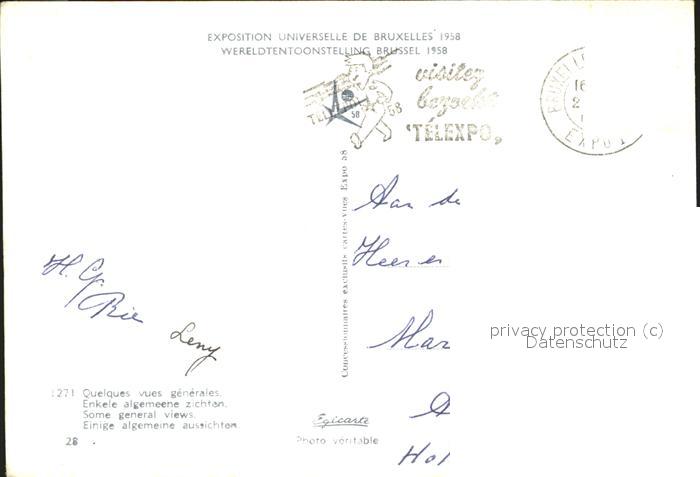 EXPOSITION UNIVERSELLE DE BRUXELLES 1958
WERELDTENTOONSTELLING BRUSSEL 1958
visitez
bezoekt
"TÉLEXPO"
58
58
BRUXELLE
16
2
1
EXPO
Concessionnaires exclusifs cartes-vues Expo 58
Aan de
Heer en
Mar
A
Hol
H. G.
Rie
Leny
privacy protection (c)
Datenschutz
1271 Quelques vues générales.
Enkele algemeene zichten.
Some general views.
Einige algemeine aussichten
28
Egicarte
Photo véritable